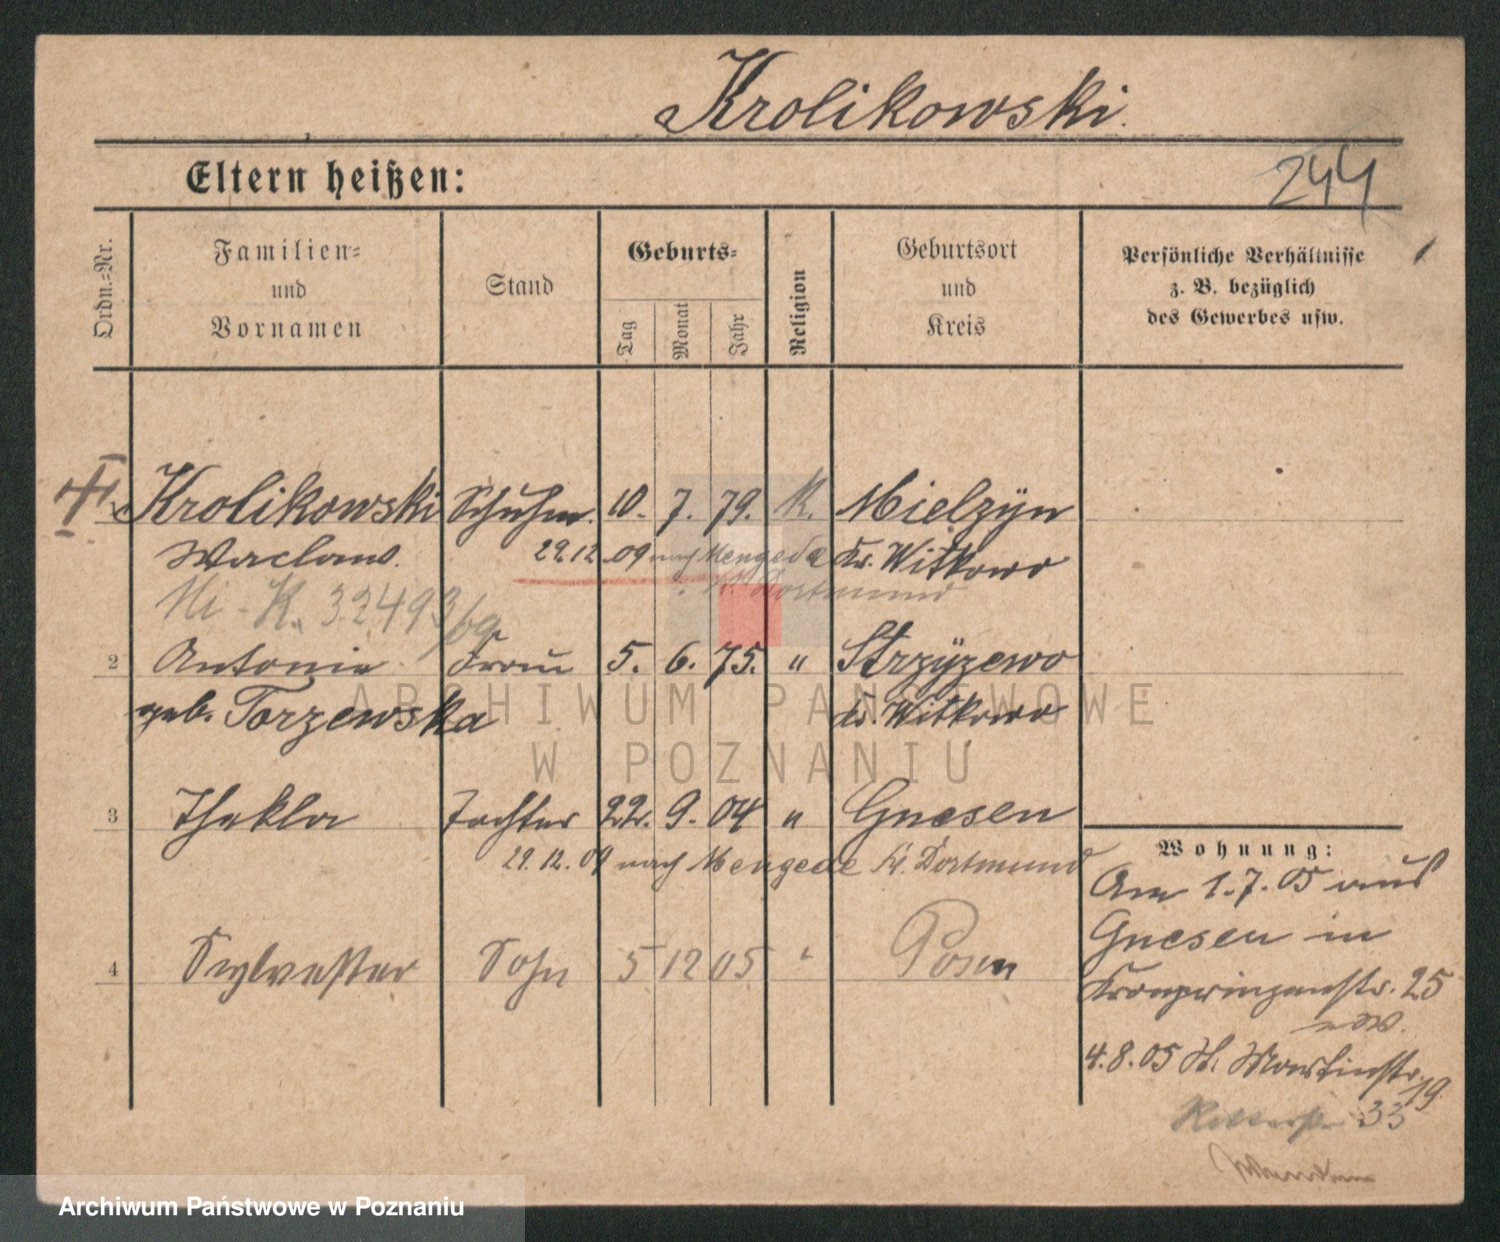 Krolikowski.
Eltern heißen:
244
Ordn.=Nr.
Familien=
und
Vornamen
Stand
Geburts=
Tag
Monat
Jahr
Religion
Geburtsort
und
Kreis
Persönliche Verhältnisse
z. B. bezüglich
des Gewerbes usw.
Krolikowski Schuhm. 10. 7. 79. K. Mielzÿn
Waclaw. 29.12.09 nach Mengede Kr. Witkowo
Kr. Dortmund
Mi - K. 32493/09
2 Antonie Frau 5. 6. 75. " Strzÿzewo
geb. Torzewska Kr. Witkowo
3 Thekla Tochter 22. 9. 04 " Gnesen
29.12.09 nach Mengede Kr. Dortmund
4 Sylvester Sohn 5 12 05 " Posen
Wohnung:
Am 1.7.05 aus
Gnesen in
Kronprinzenstr. 25
4.8.05 St. Martinstr. 19.
Ritterstr 33
ARCHIWUM PAŃSTWOWE
W POZNANIU
Archiwum Państwowe w Poznaniu